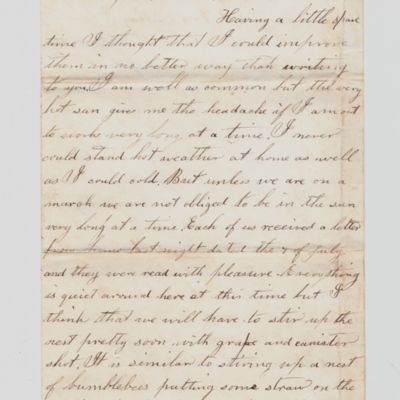 Having a little spare
time I thought that I could improve
them in no better way than writing
to you. I am well as common but the very
hot sun gives me the headache if I am out
to work very long at a time. I never
could stand hot weather at home as well
as I could cold. But unless we are on a
march we are not obliged to be in the sun
very long at a time. Each of us received a letter
from home last night dated the 7 of July
and they were read with pleasure. Everything
is quiet around here at this time but I
think that we will have to stir up the
nest pretty soon with grape and canister
shot. It is similar to stiring up a nest
of bumblebees putting some straw on the